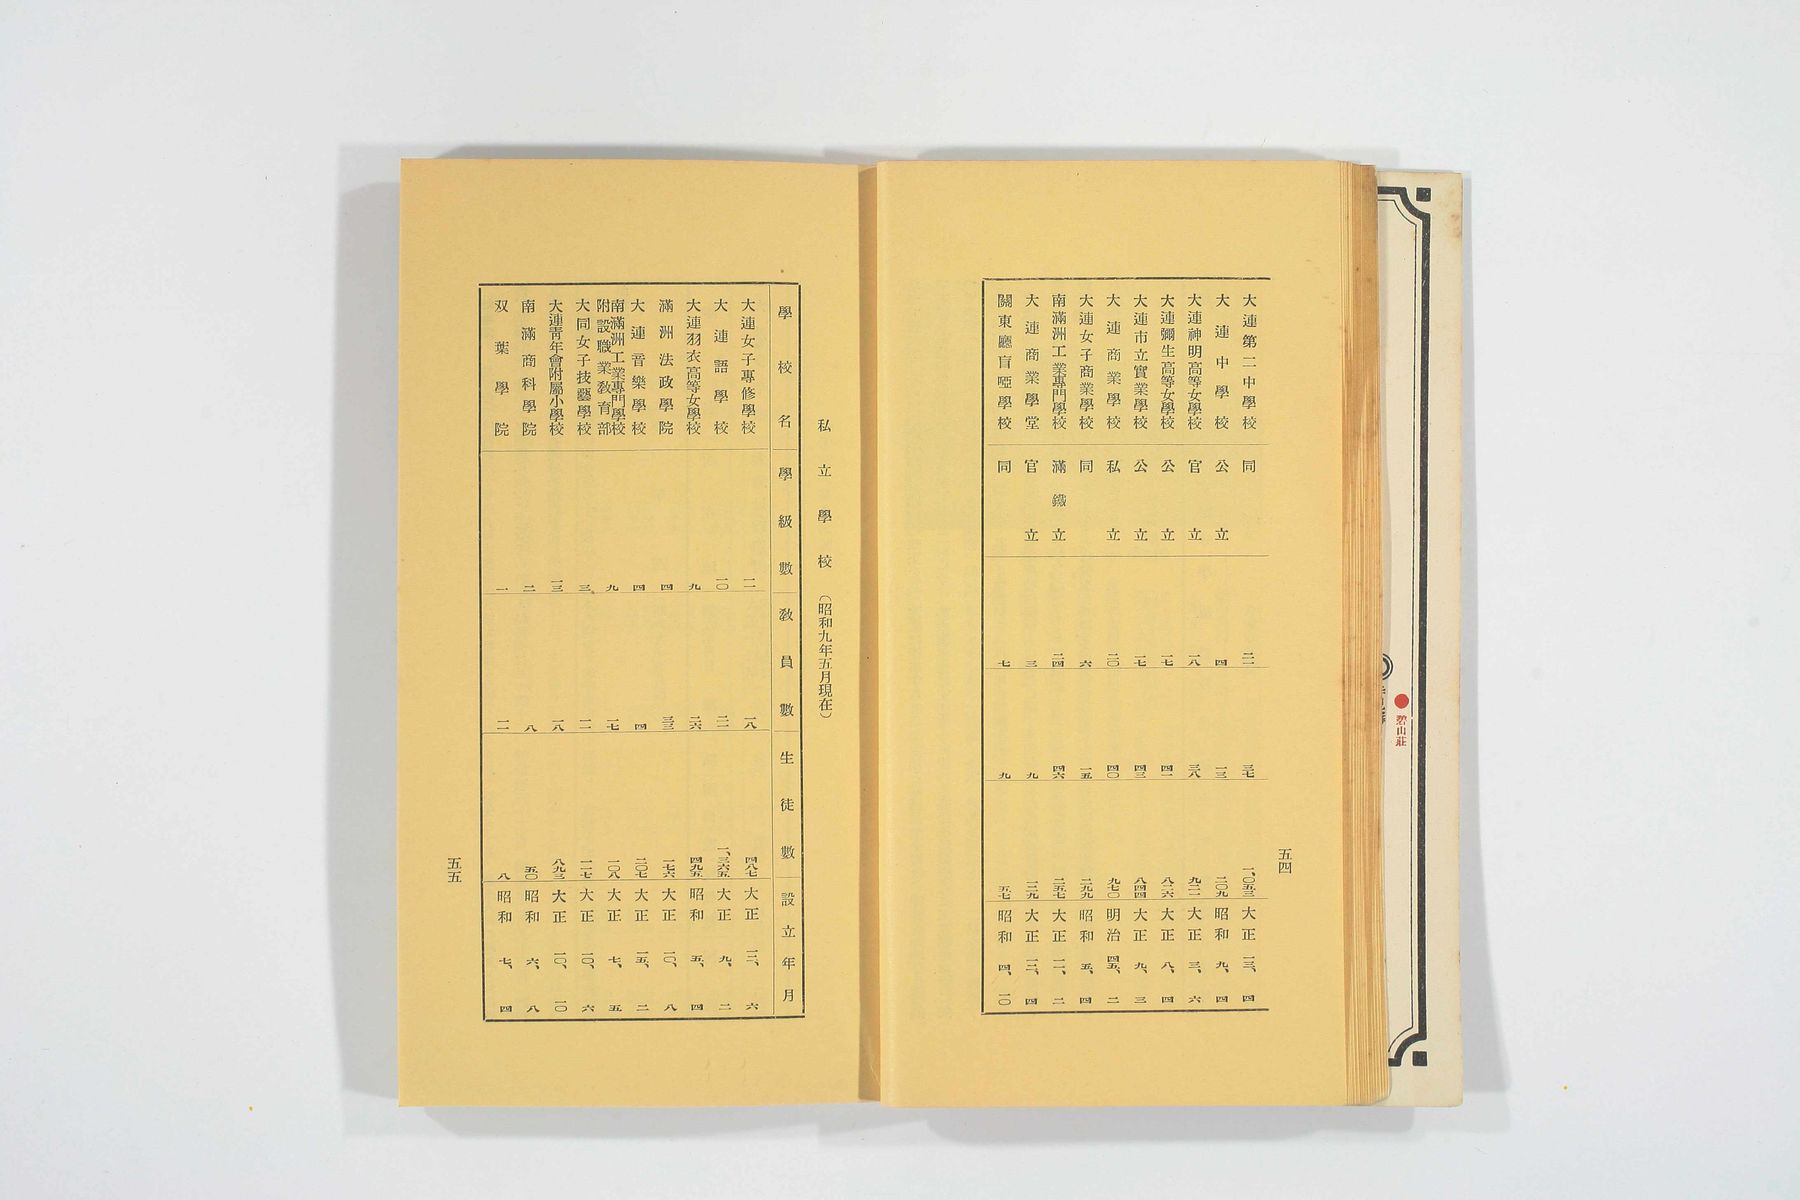 大連第二中學校 同 二一 三七 一、〇五三 大正 一三、 四
大連中學校 公立 四 一三 二〇九 昭和 九、 四
大連神明高等女學校 官立 一八 三八 九二一 大正 三、 六
大連彌生高等女學校 公立 一七 四一 八二六 大正 八、 四
大連市立實業學校 公立 一七 四三 八四四 大正 九、 三
大連商業學校 私立 二〇 四〇 九七〇 明治 四五、 二
大連女子商業學校 同 六 一五 二九九 昭和 五、 四
南滿洲工業專門學校 滿鐵立 二四 四六 二五七 大正 一一、 二
大連商業學堂 官立 三 九 一二九 大正 一二、 四
關東廳盲啞學校 同 七 九 五七 昭和 四、 一〇
五四
私立學校（昭和九年五月現在）
學校名 學級數 敎員數 生徒數 設立年月
大連女子專修學校 一一 一八 四八七 大正 一二、 六
大連語學校 一〇 二一 一、三六五 大正 九、 二
大連羽衣高等女學校 九 二六 四九五 昭和 五、 四
滿洲法政學院 四 三三 一七六 大正 一〇、 八
大連音樂學校 四 四 二〇七 大正 一五、 二
南滿洲工業專門學校附設職業敎育部 九 一七 一〇八 大正 七、 五
大同女子技藝學校 三 一一 一一七 大正 一〇、 六
大連靑年會附屬小學校 一三 一八 八九三 大正 一〇、 一〇
南滿商科學院 二 八 五〇 昭和 六、 八
双葉學院 一 一一 八 昭和 七、 四
五五
碧山莊